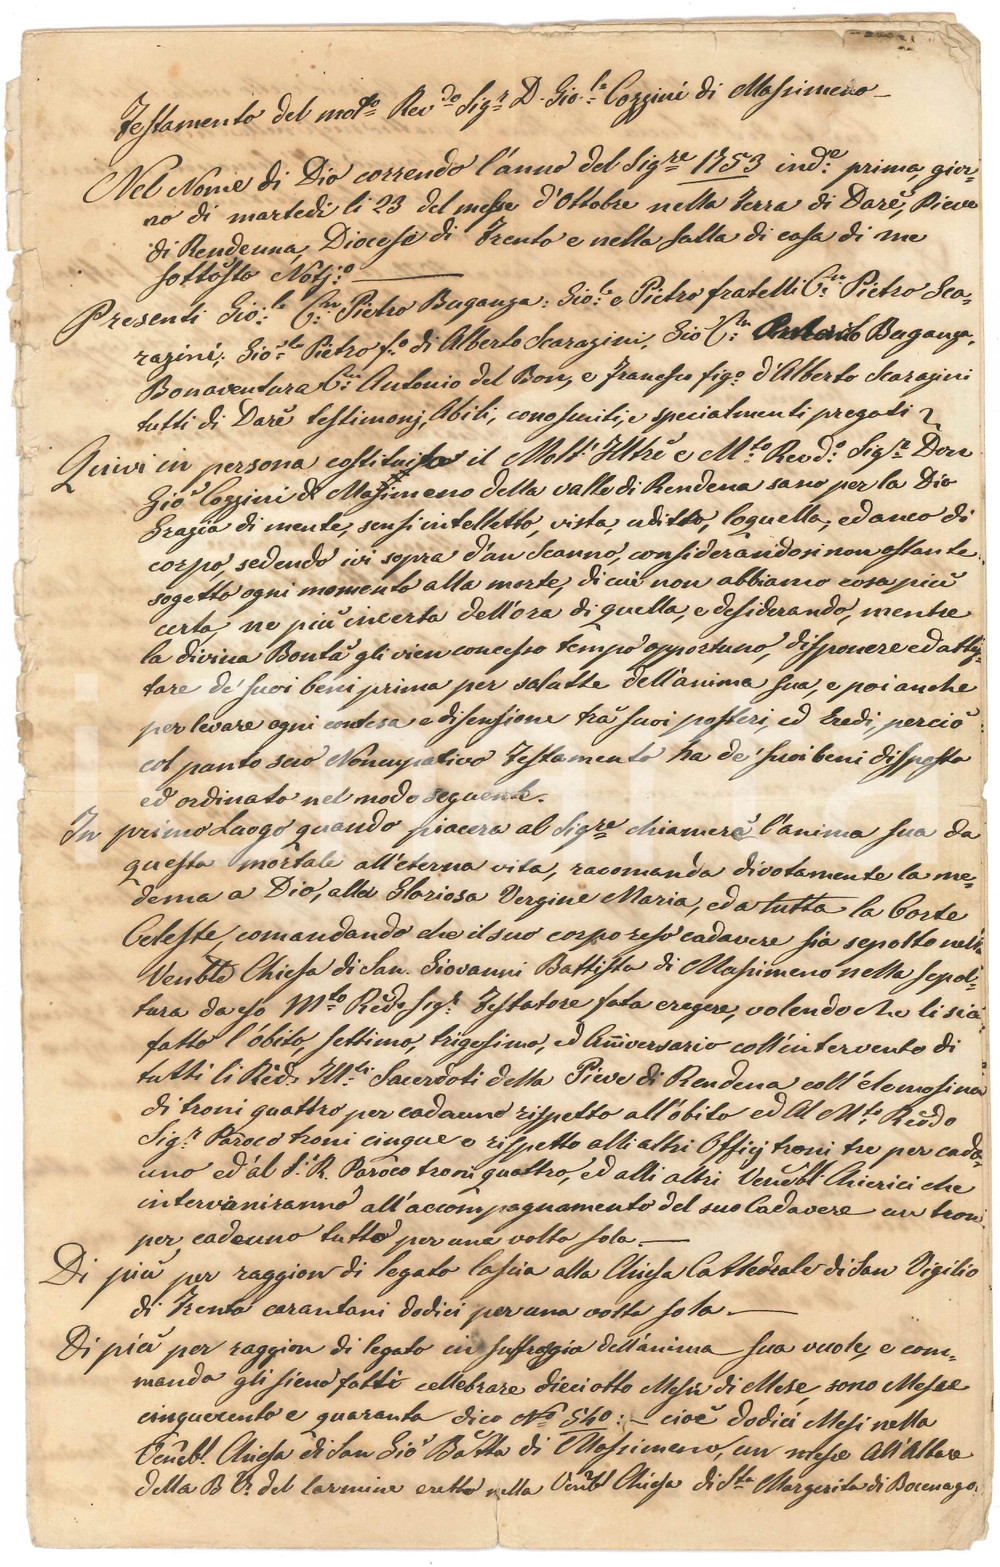 Testamento del molto Rev.do Sig.r D. Gio. Cozzini di Massimeno
Nel Nome di Dio correndo l'anno del Sig.re 1753 ind.e prima, gior=
no di martedi li 23 del mese d'Ottobre nella Terra di Darè, Pieve
di Rendenna, Diocese di Trento e nella salla di casa di me
sottosto Notj.o
Presenti Gio: Pietro Buganza: Gio: e Pietro fratelli Pietro Sca=
razini; Gio: Pietro f.o di Alberto Scarazini, Gio Antonio Buganza,
Bonaventura Antonio del Bon, e Francesco fig.o d'Alberto Scarazini
tutti di Darè testimonj, Abili, conosuiti, e specialmenti pregati
Quivi in persona costituito il Molt' Illtre e M.to Rev.do Sig.re Don
Gio Cozzini di Massimeno della valle di Rendena sano per la Dio
Grazia di mente, sensi intelletto, vista, uditto, loquella, ed anco di
corpo, sedendo ivi sopra d'un Scanno, considerandosi non ostante
sogetto ogni momento alla morte, di cui non abbiamo cosa più
certa, ne più incerta dell'ora di quella, e desiderando, mentre
la divina Bontà gli vien concesso tempo opportuno, disponere ed atti=
tare de' suoi beni prima per salutte dell'anima sua, e poi anche
per levare ogni contesa e disensione trà suoi posteri, ed Eredi, perciò
col panto suo Noncupativo Testamento ha de' suoi beni disposto
ed ordinato nel modo seguente.
In primo Luogo quando piacera al Sig.re chiamerà l'anima sua da
questa mortale all'eterna vita, racomanda divotamente la me=
dema a Dio, alla Gloriosa Vergine Maria, ed a tutta la Corte
Celeste, comandando che il suo corpo reso cadavere sia sepolto nella
Venble Chiesa di San Giovanni Battista di Massimeno nella sepol=
tura da eso M.to Redo Sig.r Testatore fata eregere, volendo che li sia
fatto l'obito, settimo, trigesimo, ed Anniversario coll'intervento di
tutti li Rēd. Ill.ti Sacerdoti della Pieve di Rendena coll'elemosina
di troni quattro per cadauno rispetto all'obito ed Al M.to Redo
Sig.r Paroco troni cinque e rispetto alli altri Offizj troni tre per cada=
uno ed al S.r R. Paroco troni quattro, ed alli altri Venebl Chierici che
interveniranno all'accompagnamento del suo Cadavere un tron
per cadauno tutto per una volta sola.
Di più per raggion di legato lascia alla Chiesa Cattedrale di San Vigilio
di Trento carantani dodici per una volta sola.
Di più per raggion di legato in suffragio dell'anima sua vuole, e com=
manda gli sieno fatti cellebrare dieciotto Messe di Mese, sono Messe
cinquecento e quaranta dico No 540: cioè dodici Mesi nella
Venebl. Chiesa di San Gio Batta di Massimeno, un mese All'Altare
della B. V. del Carmine eretto nella Venebl Chiesa di Sta Margerita di Bocenago.